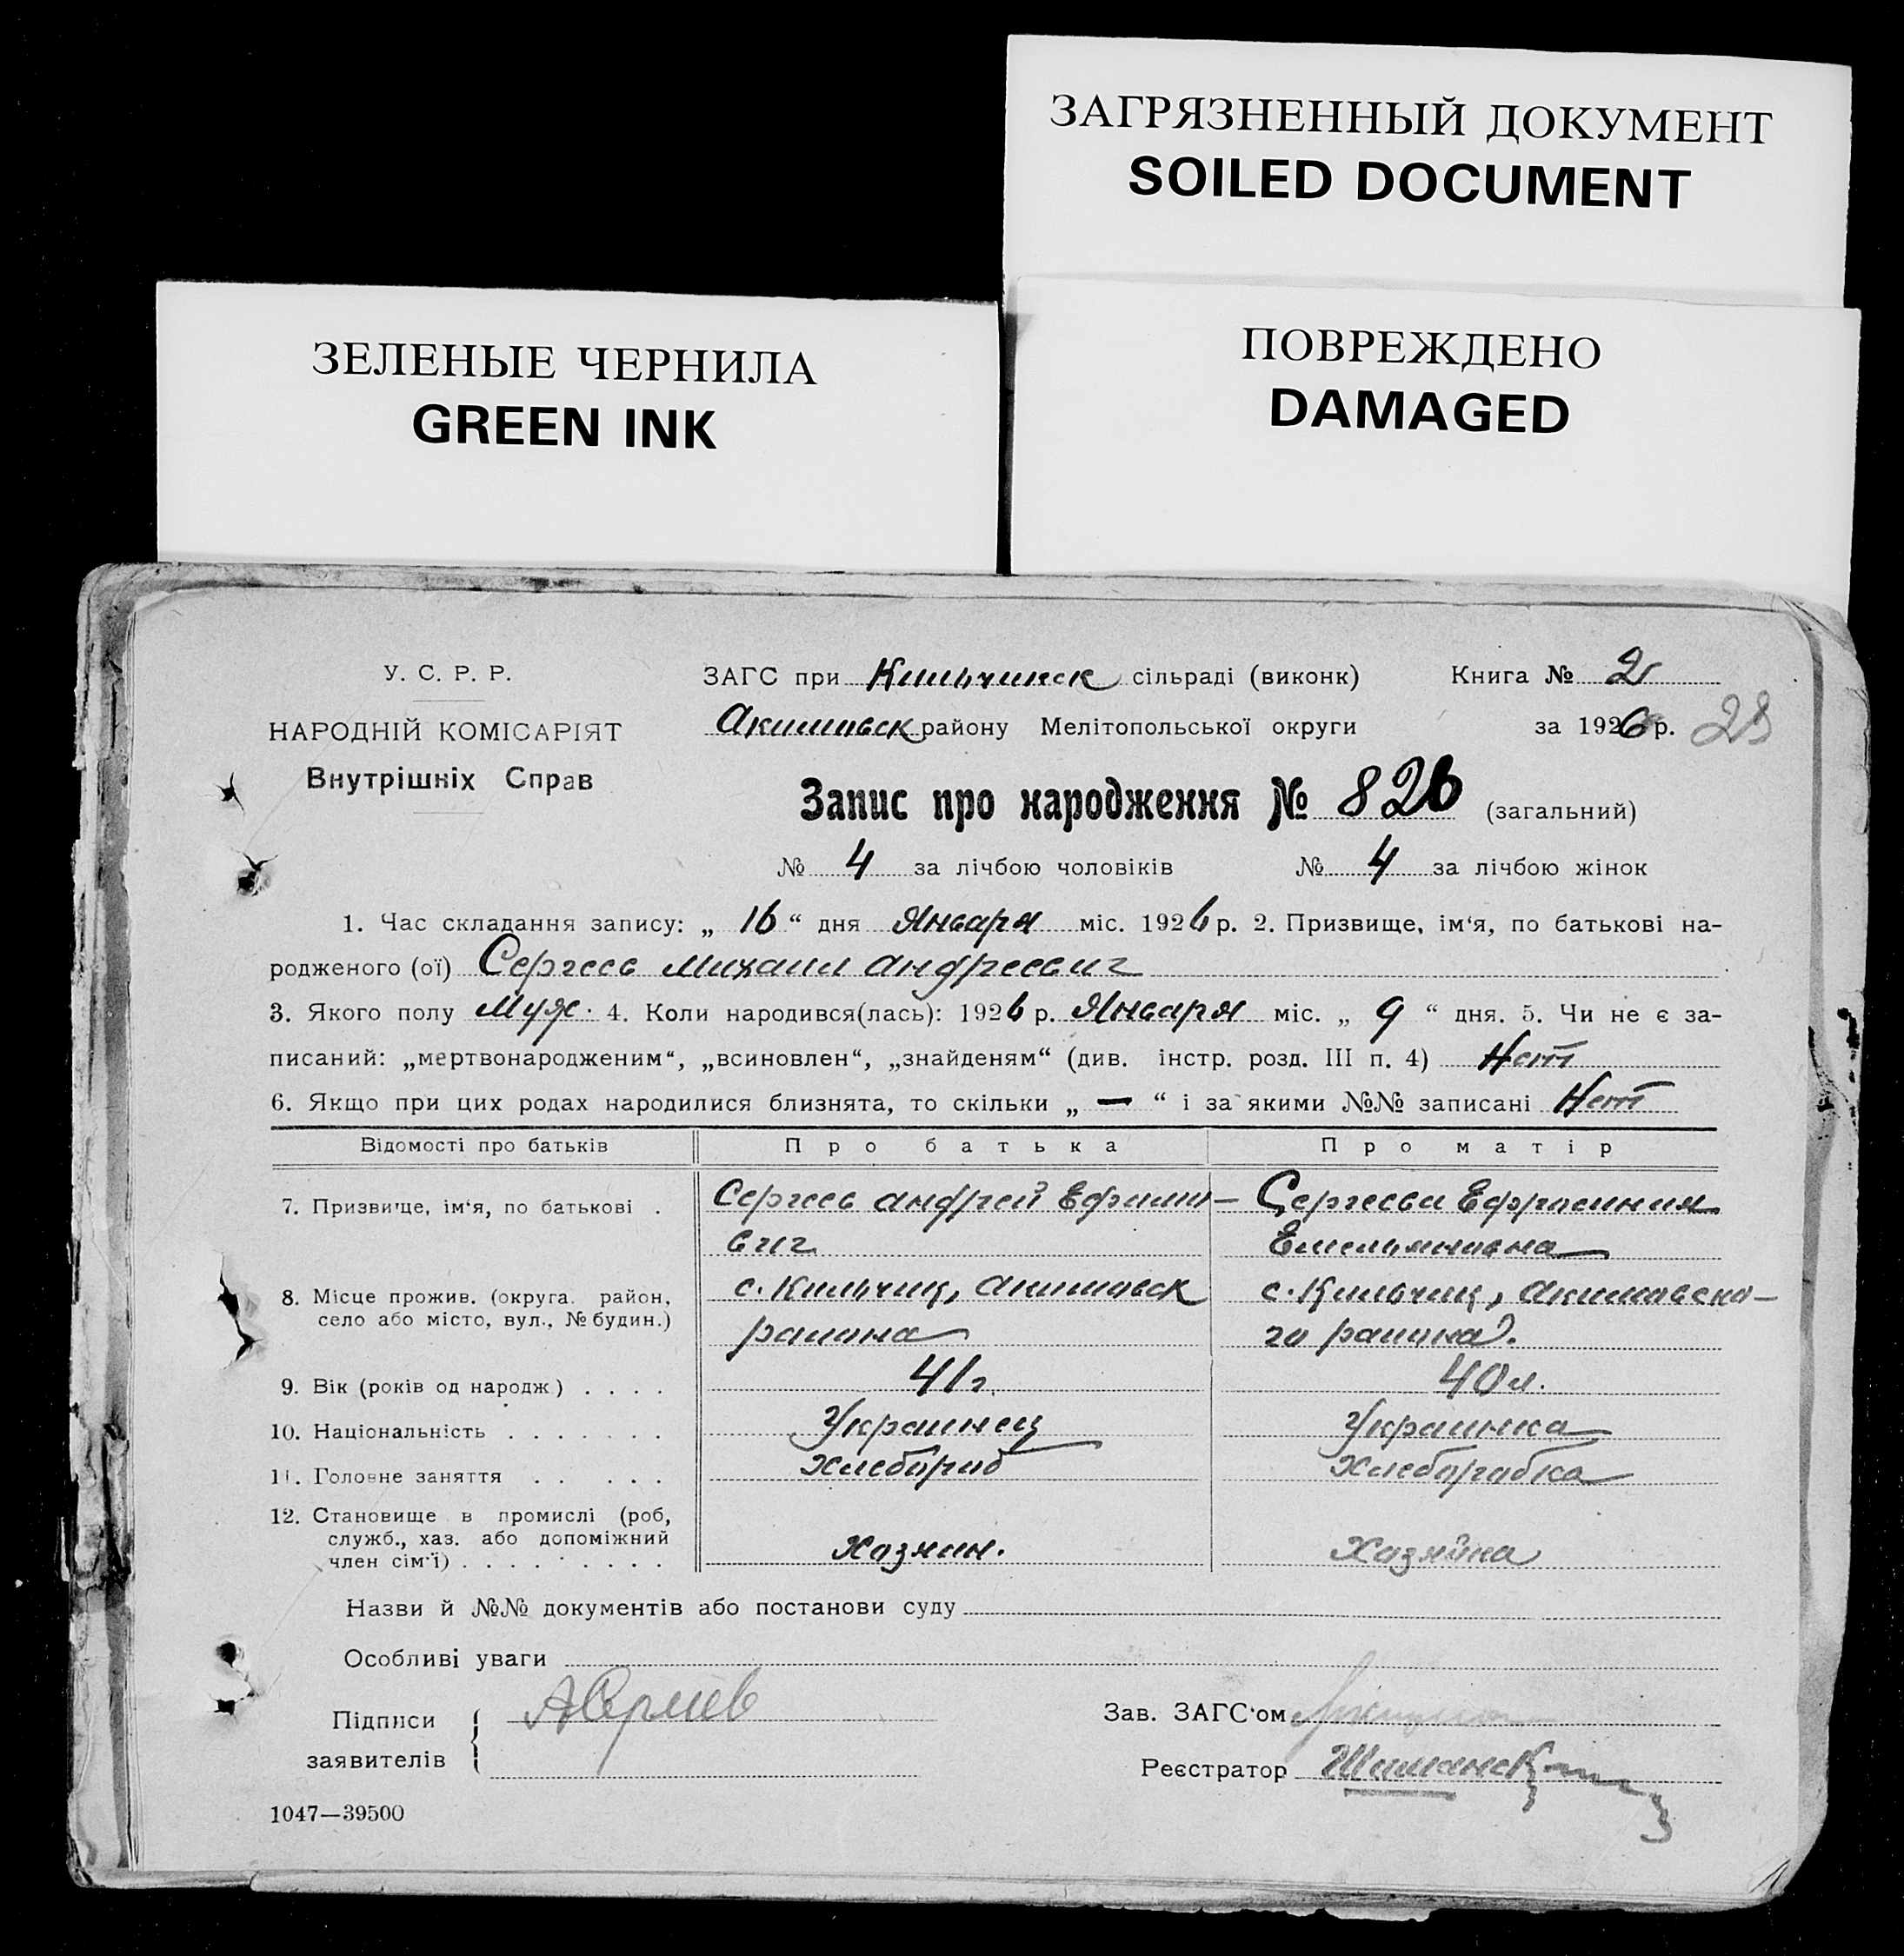 ЗАГРЯЗНЕННЫЙ ДОКУМЕНТ
SOILED DOCUMENT
ЗЕЛЕНЫЕ ЧЕРНИЛА
GREEN INK
ПОВРЕЖДЕНО
DAMAGED
У. С. Р. Р.
НАРОДНІЙ КОМІСАРІЯТ
Внутрішніх Справ
ЗАГС при Кильчинск сільраді (виконк) Книга № 2
Акимовск району Мелітопольської округи за 1926 р. 23
Запис про народження № 826 (загальний)
№ 4 за лічбою чоловіків № 4 за лічбою жінок
1. Час складання запису: „ 16 “ дня Января міс. 1926 р. 2. Призвище, ім‘я, по батькові на-
родженого (ої) Сергеев Михаил Андреевич
3. Якого полу Муж. 4. Коли народився(лась): 1926 р. Января міс. „ 9 “ дня. 5. Чи не є за-
писаний: „мертвонародженим“, „всиновлен“, „знайденям“ (див. інстр. розд. III п. 4) Нет
6. Якщо при цих родах народилися близнята, то скільки „ — “ і за якими №№ записані Нет
Відомості про батьків Про батька Про матір
7. Призвище, ім‘я, по батькові . Сергеев Андрей Ефимо- Сергеева Ефросиния
вич Емельяновна
8. Місце прожив. (округа. район, с. Кильчиц, Акимовск с. Кильчиц, Акимовско-
село або місто, вул., № будин.) района го района.
9. Вік (років од народж.) . . . . 41 г. 40 л.
10. Національність . . . . . . . Украинец Украинка
11. Головне заняття . . . . . Хлебороб Хлеборобка
12. Становище в промислі (роб,
служб., хаз. або допоміжний
член сім‘ї) . . . . . . . . . Хозяин. Хозяйка
Назви й №№ документів або постанови суду
Особливі уваги
Підписи
заявителів
АСергеев
Зав. ЗАГС‘ом
Реєстратор Шиманск
1047—39500